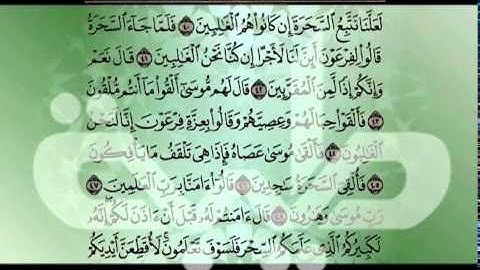 لَعَلَّنَا نَتَّبِعُ ٱلسَّحَرَةَ إِن كَانُوا۟ هُمُ ٱلْغَـٰلِبِينَ ٤٠ فَلَمَّا جَآءَ ٱلسَّحَرَةُ
قَالُوا۟ لِفِرْعَوْنَ أَئِنَّ لَنَا لَأَجْرًا إِن كُنَّا نَحْنُ ٱلْغَـٰلِبِينَ ٤١ قَالَ نَعَمْ
وَإِنَّكُمْ إِذًا لَّمِنَ ٱلْمُقَرَّبِينَ ٤٢ قَالَ لَهُم مُّوسَىٰٓ أَلْقُوا۟ مَآ أَنتُم مُّلْقُونَ
٤٣ فَأَلْقَوْا۟ حِبَالَهُمْ وَعِصِيَّهُمْ وَقَالُوا۟ بِعِزَّةِ فِرْعَوْنَ إِنَّا لَنَحْنُ
ٱلْغَـٰلِبُونَ ٤٤ فَأَلْقَىٰ مُوسَىٰ عَصَاهُ فَإِذَا هِىَ تَلْقَفُ مَا يَأْفِكُونَ
٤٥ فَأُلْقِىَ ٱلسَّحَرَةُ سَـٰجِدِينَ ٤٦ قَالُوٓا۟ ءَامَنَّا بِرَبِّ ٱلْعَـٰلَمِينَ ٤٧
رَبِّ مُوسَىٰ وَهَـٰرُونَ ٤٨ قَالَ ءَامَنتُمْ لَهُۥ قَبْلَ أَنْ ءَاذَنَ لَكُمْ إِنَّهُۥ
لَكَبِيرُكُمُ ٱلَّذِى عَلَّمَكُمُ ٱلسِّحْرَ فَلَسَوْفَ تَعْلَمُونَ لَأُقَطِّعَنَّ أَيْدِيَكُمْ